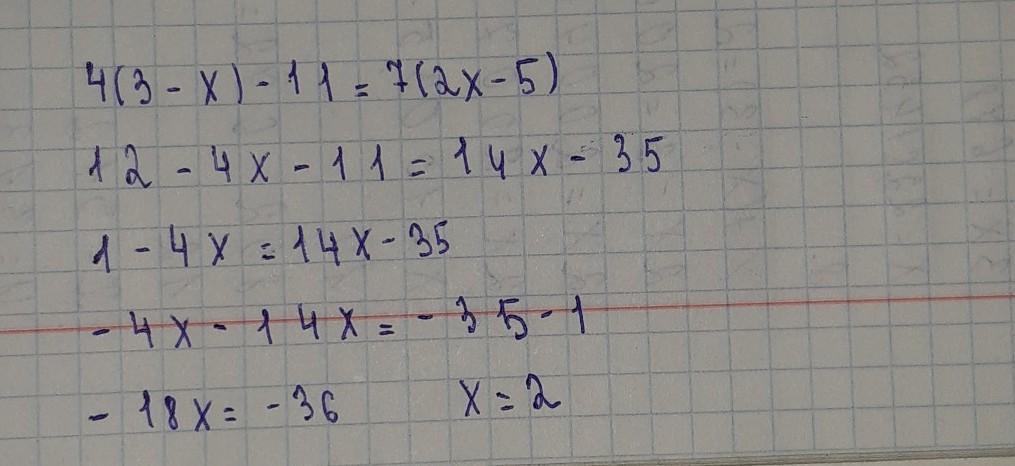 4(3 - x) - 11 = 7(2x - 5)
12 - 4x - 11 = 14x - 35
1 - 4x = 14x - 35
- 4x - 14x = - 35 - 1
- 18x = - 36 x = 2